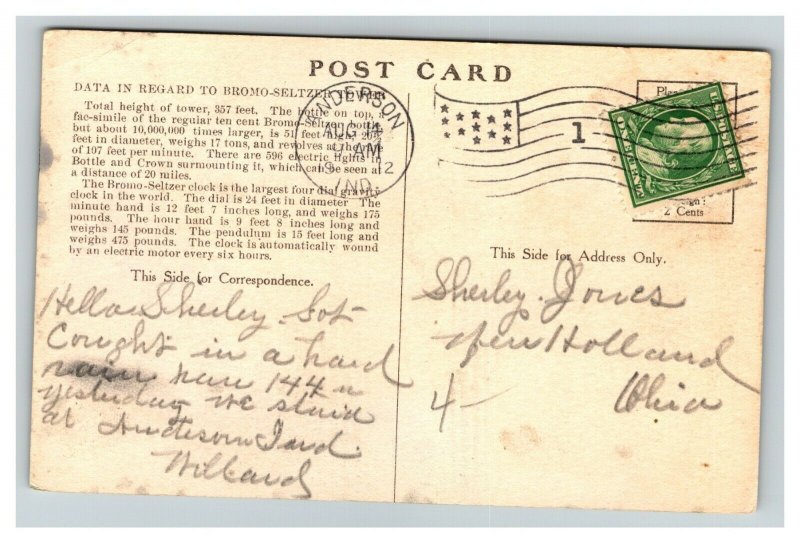 POST CARD
DATA IN REGARD TO BROMO-SELTZER TOWER
Total height of tower, 357 feet. The bottle on top, a
fac-simile of the regular ten cent Bromo-Seltzer bottle
but about 10,000,000 times larger, is 51 feet high, 20
feet in diameter, weighs 17 tons, and revolves at the
of 107 feet per minute. There are 596 electric lights in
Bottle and Crown surmounting it, which can be seen at
a distance of 20 miles.
The Bromo-Seltzer clock is the largest four dial gravity
clock in the world. The dial is 24 feet in diameter. The
minute hand is 12 feet 7 inches long, and weighs 175
pounds. The hour hand is 9 feet 8 inches long and
weighs 145 pounds. The pendulum is 15 feet long and
weighs 475 pounds. The clock is automatically wound
by an electric motor every six hours.
This Side for Correspondence.
Hello Sherley. Got
Cought in a hard
rain 144
yesterday we staid
at Anderson Ind.
Willard
ANDERSON
AUG
AM
IND.
1
2 Cents
This Side for Address Only.
Sherley Jones
New Holland
4- Ohio